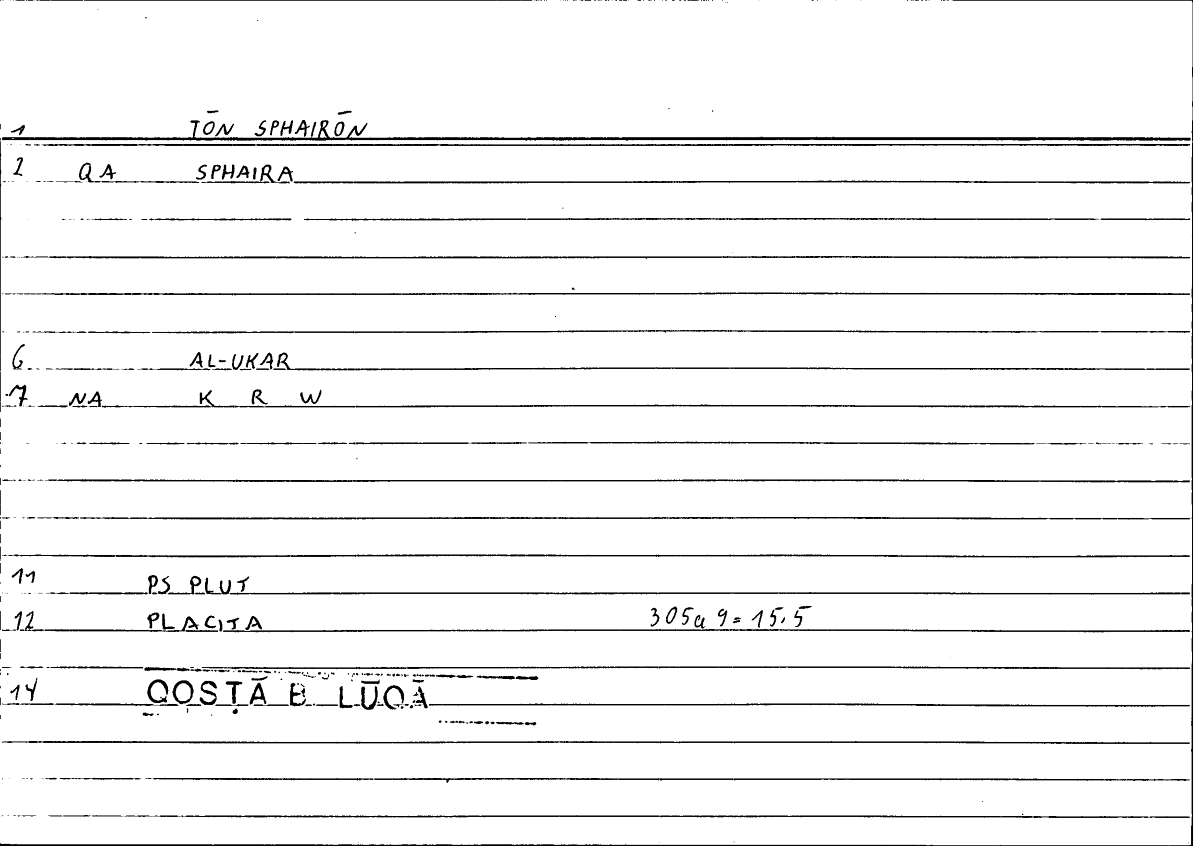 1 TŌN SPHAIRŌN
2 QA SPHAIRA
6 AL-UKAR
7 NA K R W
11 PS PLUT
12 PLACITA 305a 9 = 15,5
14 QOSṬĀ B LŪQĀ